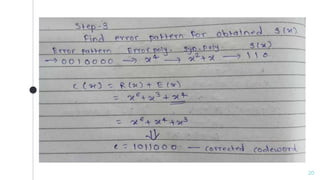 Step-3
Find error pattern for obtained S(x)
Error pattern Error poly. Syn. poly. S(x)
→ 0010000 → x⁴ → x²+x → 110
c(x) = R(x) + E(x)
= x⁶+x³+x⁴
= x⁶+x⁴+x³
⇓
c = 1011000 — corrected codeword
20